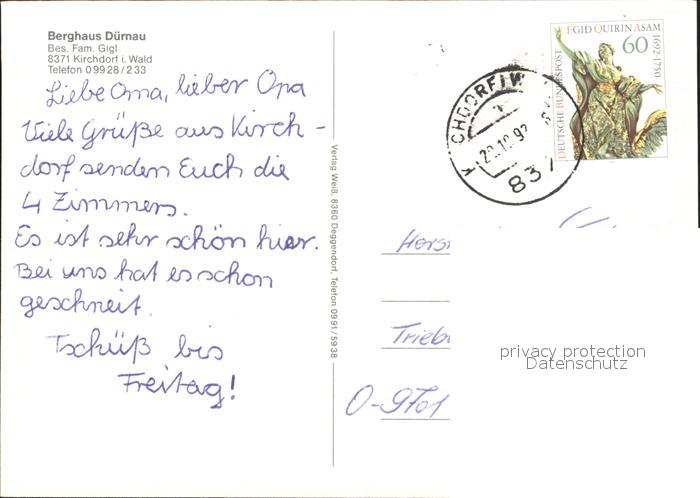 Berghaus Dürnau
Bes. Fam. Gigl
8371 Kirchdorf i. Wald
Telefon 09928/233
Liebe Oma, lieber Opa
Viele Grüße aus Kirch-
dorf senden Euch die
4 Zimmers.
Es ist sehr schön hier.
Bei uns hat es schon
geschneit.
Tschüß bis
Freitag!
Verlag Weiß, 8360 Deggendorf, Telefon 0991/5938
EGID QUIRIN ASAM
1692-1750
60
DEUTSCHE BUNDESPOST
837
Triebe
O-9701
privacy protection
Datenschutz